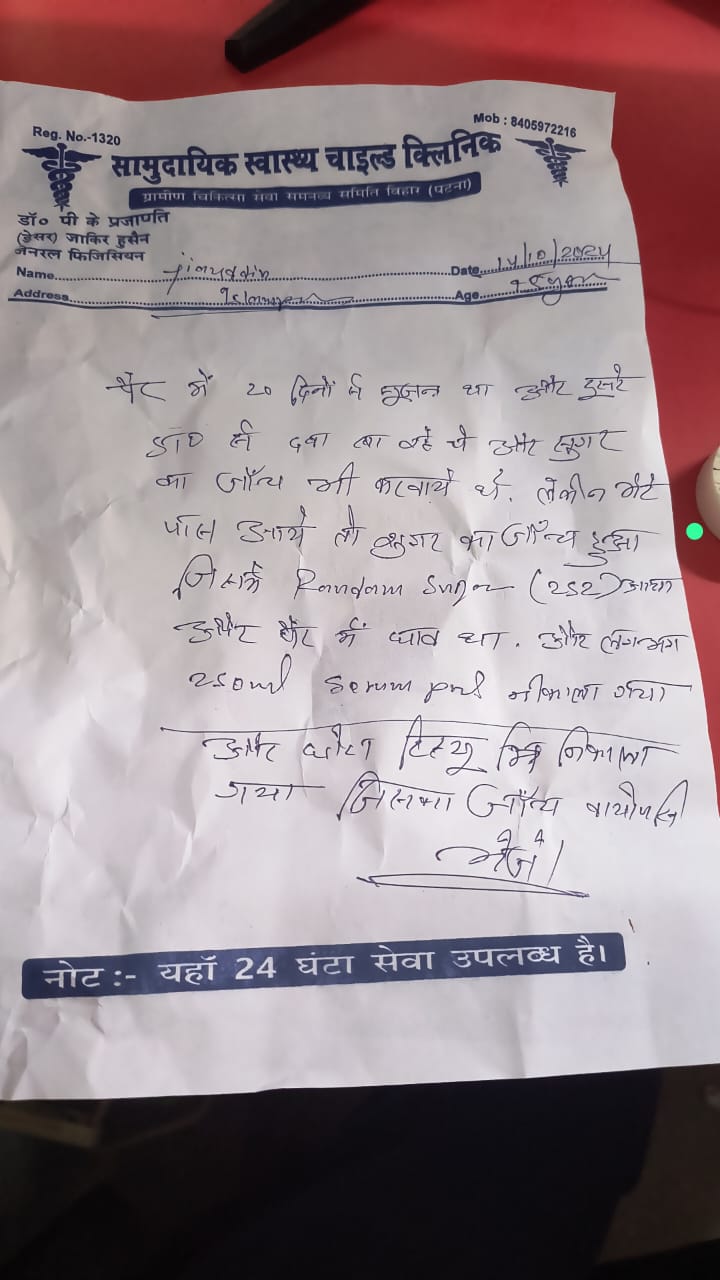 Reg. No.-1320
Mob : 8405972216
सामुदायिक स्वास्थ्य चाइल्ड क्लिनिक
ग्रामीण चिकित्सा सेवा समनव्य समिति बिहार (पटना)
डॉ० पी के प्रजापति
(ड्रेसर) जाकिर हुसैन
जेनरल फिजिसियन
Name Date 14/10/2024
Address Age
में 20 दिनों से सूजन था और दुसरे
डा० से दवा खा रहे थे और सुगर
का जाँच भी करवाये थे. लेकीन मेरे
पास आये तो शुगर का जाँच हुआ
जिसके Random Sugar (252) आया
और में घाव था. और लगभग
250ml Serum pus नीकाला गया
और छोटा टिस्यू भि निकाला
गया जिसका जाँच वायोपसी
भेजें।
नोट :- यहाँ 24 घंटा सेवा उपलब्ध है।